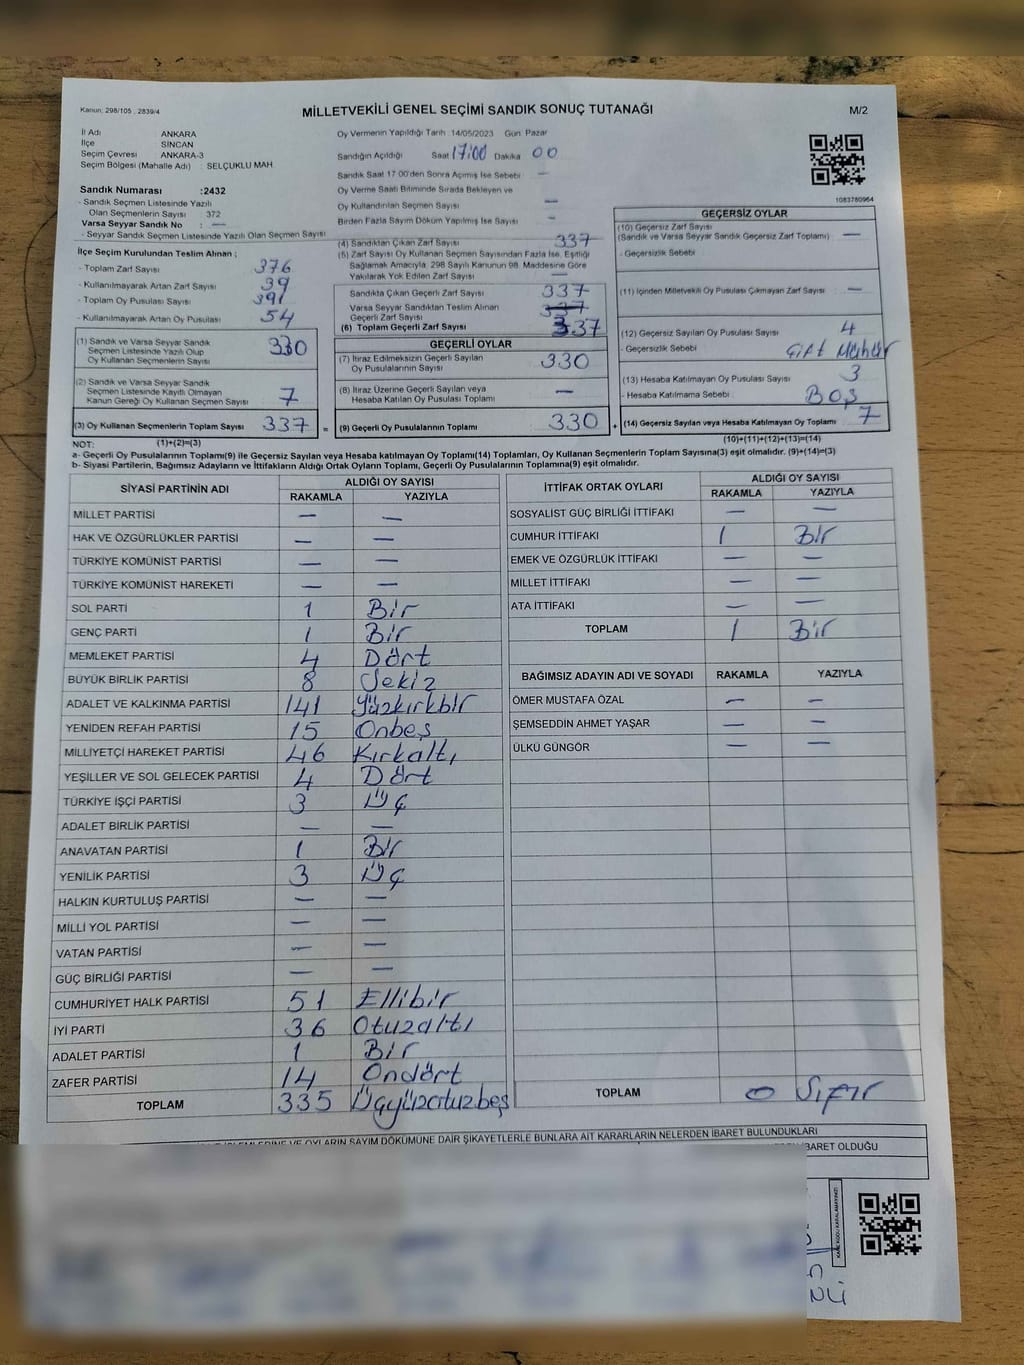 Kanun: 298/105 , 2839/4
MİLLETVEKİLİ GENEL SEÇİMİ SANDIK SONUÇ TUTANAĞI
M/2
İl Adı ANKARA
İlçe SİNCAN
Seçim Çevresi ANKARA-3
Seçim Bölgesi (Mahalle Adı) : SELÇUKLU MAH.
Oy Vermenin Yapıldığı Tarih :14/05/2023 Gün: Pazar
Sandığın Açıldığı Saat 17:00 Dakika 00
Sandık Saat 17.00'den Sonra Açılmış İse Sebebi —
Oy Verme Saati Bitiminde Sırada Bekleyen ve
Oy Kullandırılan Seçmen Sayısı —
Birden Fazla Sayım Döküm Yapılmış İse Sayısı —
1083780964
Sandık Numarası :2432
- Sandık Seçmen Listesinde Yazılı
Olan Seçmenlerin Sayısı 372
Varsa Seyyar Sandık No : —
- Seyyar Sandık Seçmen Listesinde Yazılı Olan Seçmen Sayısı
İlçe Seçim Kurulundan Teslim Alınan ;
- Toplam Zarf Sayısı 376
- Kullanılmayarak Artan Zarf Sayısı 39
- Toplam Oy Pusulası Sayısı 391
- Kullanılmayarak Artan Oy Pusulası 54
(1) Sandık ve Varsa Seyyar Sandık
Seçmen Listesinde Yazılı Olup
Oy Kullanan Seçmenlerin Sayısı 330
(2) Sandık ve Varsa Seyyar Sandık
Seçmen Listesinde Kayıtlı Olmayan
Kanun Gereği Oy Kullanan Seçmen Sayısı 7
(3) Oy Kullanan Seçmenlerin Toplam Sayısı 337 =
(4) Sandıktan Çıkan Zarf Sayısı 337
(5) Zarf Sayısı Oy Kullanan Seçmen Sayısından Fazla İse, Eşitliği
Sağlamak Amacıyla, 298 Sayılı Kanunun 98. Maddesine Göre
Yakılarak Yok Edilen Zarf Sayısı —
Sandıkta Çıkan Geçerli Zarf Sayısı 337
Varsa Seyyar Sandıktan Teslim Alınan
Geçerli Zarf Sayısı 337
(6) Toplam Geçerli Zarf Sayısı 337
GEÇERLİ OYLAR
(7) İtiraz Edilmeksizin Geçerli Sayılan
Oy Pusulasının Sayısı 330
(8) İtiraz Üzerine Geçerli Sayılan veya
Hesaba Katılan Oy Pusulası Toplamı —
(9) Geçerli Oy Pusulalarının Toplamı 330 +
GEÇERSİZ OYLAR
(10) Geçersiz Zarf Sayısı
(Sandık ve Varsa Seyyar Sandık Geçersiz Zarf Toplamı) —
- Geçersizlik Sebebi
(11) İçinden Milletvekili Oy Pusulası Çıkmayan Zarf Sayısı —
(12) Geçersiz Sayılan Oy Pusulası Sayısı 4
- Geçersizlik Sebebi Çift Mühür
(13) Hesaba Katılmayan Oy Pusulası Sayısı 3
- Hesaba Katılmama Sebebi BOŞ
(14) Geçersiz Sayılan veya Hesaba Katılmayan Oy Toplamı 7
NOT: (1)+(2)=(3) (10)+(11)+(12)+(13)=(14)
a- Geçerli Oy Pusulalarının Toplamı(9) ile Geçersiz Sayılan veya Hesaba katılmayan Oy Toplamı(14) Toplamları, Oy Kullanan Seçmenlerin Toplam Sayısına(3) eşit olmalıdır. (9)+(14)=(3)
b- Siyasi Partilerin, Bağımsız Adayların ve İttifakların Aldığı Ortak Oyların Toplamı, Geçerli Oy Pusulalarının Toplamına(9) eşit olmalıdır.
SİYASİ PARTİNİN ADI ALDIĞI OY SAYISI
RAKAMLA YAZIYLA
MİLLET PARTİSİ — —
HAK VE ÖZGÜRLÜKLER PARTİSİ — —
TÜRKİYE KOMÜNİST PARTİSİ — —
TÜRKİYE KOMÜNİST HAREKETİ — —
SOL PARTİ 1 Bir
GENÇ PARTİ 1 Bir
MEMLEKET PARTİSİ 4 Dört
BÜYÜK BİRLİK PARTİSİ 8 Sekiz
ADALET VE KALKINMA PARTİSİ 141 Yüzkırkbir
YENİDEN REFAH PARTİSİ 15 Onbeş
MİLLİYETÇİ HAREKET PARTİSİ 46 Kırkaltı
YEŞİLLER VE SOL GELECEK PARTİSİ 4 Dört
TÜRKİYE İŞÇİ PARTİSİ 3 Üç
ADALET BİRLİK PARTİSİ — —
ANAVATAN PARTİSİ 1 Bir
YENİLİK PARTİSİ 3 Üç
HALKIN KURTULUŞ PARTİSİ — —
MİLLİ YOL PARTİSİ — —
VATAN PARTİSİ — —
GÜÇ BİRLİĞİ PARTİSİ — —
CUMHURİYET HALK PARTİSİ 51 Ellibir
İYİ PARTİ 36 Otuzaltı
ADALET PARTİSİ 1 Bir
ZAFER PARTİSİ 14 Ondört
TOPLAM 335 Üçyüzotuzbeş
İTTİFAK ORTAK OYLARI ALDIĞI OY SAYISI
RAKAMLA YAZIYLA
SOSYALİST GÜÇ BİRLİĞİ İTTİFAKI — —
CUMHUR İTTİFAKI 1 Bir
EMEK VE ÖZGÜRLÜK İTTİFAKI — —
MİLLET İTTİFAKI — —
ATA İTTİFAKI — —
TOPLAM 1 Bir
BAĞIMSIZ ADAYIN ADI VE SOYADI RAKAMLA YAZIYLA
ÖMER MUSTAFA ÖZAL — —
ŞEMSEDDİN AHMET YAŞAR — —
ÜLKÜ GÜNGÖR — —
TOPLAM 0 Sıfır
İŞLEMLERİNE VE OYLARIN SAYIM DÖKÜMÜNE DAİR ŞİKAYETLERLE BUNLARA AİT KARARLARIN NELERDEN İBARET BULUNDUKLARI
İBARET OLDUĞU